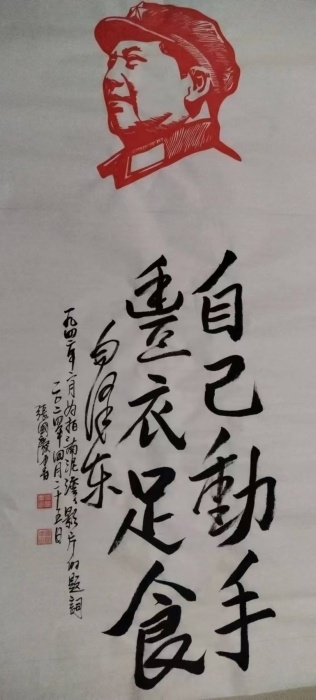 自己動手
豐衣足食
毛澤东
一九四二年二月为拍南泥湾影片的题詞
二〇二四年四月二十五日
張國慶书